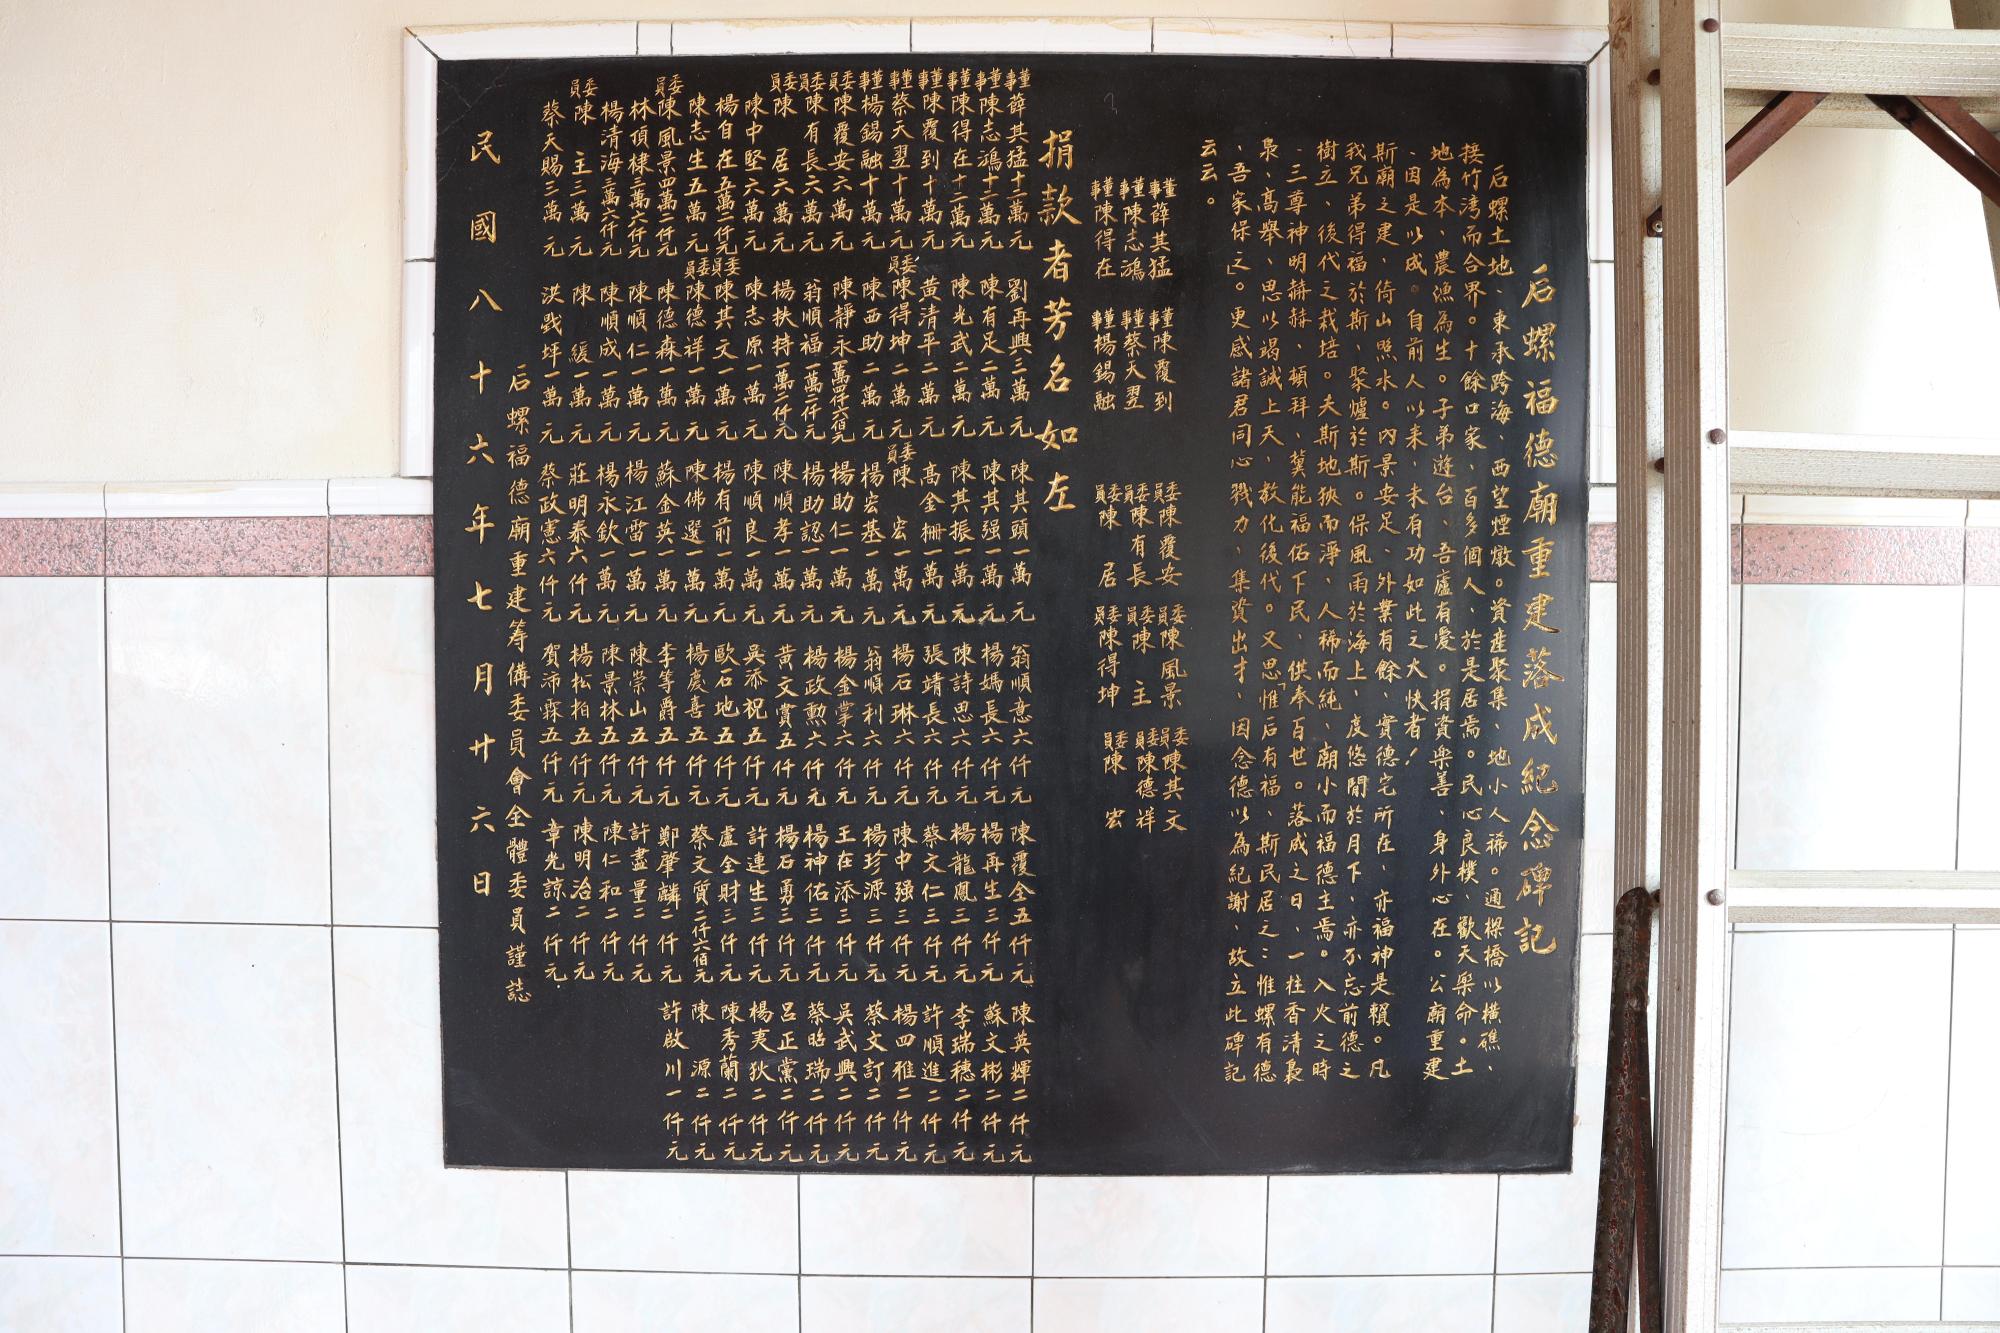 后螺福德廟重建落成紀念碑記
后螺土地、東承跨海、西望煙墩。資產聚集、地小人稀。通樑橋以橫礁、
接竹湾而合界。十餘口家、百多個人、於是居焉。民心良樸、歡天樂命。土
地為本、農漁為生。子弟遊台、吾廬有愛。捐資樂善、身外心在。公廟重建
、因是以成。自前人以来、未有功如此之大快者！
斯廟之建、倚山照水。內景安足、外業有餘、實德宅所在、亦福神是賴。凡
我兄弟得福於斯、聚爐於斯。保風雨於海上、度悠閒於月下、亦不忘前德之
樹立、後代之栽培。夫斯地狹而淨、人稀而純、廟小而福德主焉。入火之時
、三尊神明赫赫、頓拜、冀能福佑下民、供奉百世。落成之日、一柱香清裊
裊、高舉、思以竭誠上天、教化後代。又思「惟后有福、斯民居之；惟螺有德
、吾家保之」。更感諸君同心戮力、集資出才、因念德以為紀謝、故立此碑記
云云。
董事薛其猛 董事陳覆到 委員陳覆安 委員陳風景 委員陳其文
董事陳志鴻 董事蔡天翌 委員陳有長 委員陳主 委員陳德祥
董事陳得在 董事楊錫融 委員陳居 委員陳得坤 委員陳宏
捐款者芳名如左
董事薛其猛十二萬元 劉再興三萬元 陳其頭一萬元 翁順意六仟元 陳覆全五仟元 陳英輝二仟元
董事陳志鴻十二萬元 陳有足二萬元 陳其强一萬元 楊媽長六仟元 楊再生三仟元 蘇文彬二仟元
董事陳得在十二萬元 陳光武二萬元 陳其振一萬元 陳詩思六仟元 楊龍鳳三仟元 李瑞穗二仟元
董事陳覆到十萬元 黃清平二萬元 高金柵一萬元 張靖長六仟元 蔡文仁三仟元 許順進二仟元
董事蔡天翌十萬元 委員陳得坤二萬元 委員陳宏一萬元 楊石琳六仟元 陳中强三仟元 楊四雅二仟元
董事楊錫融十萬元 陳西助二萬元 楊宏基一萬元 翁順利六仟元 楊珍源三仟元 蔡文訂二仟元
委員陳覆安六萬元 陳靜永一萬四仟六佰元 楊助仁一萬元 楊金掌六仟元 王在添三仟元 吳武興二仟元
委員陳有長六萬元 翁順福一萬二仟元 楊助認一萬元 楊政勲六仟元 楊神佑三仟元 蔡昭瑞二仟元
委員陳居六萬元 楊扶持一萬二仟元 陳順孝一萬元 黃文賞五仟元 楊石勇三仟元 呂正黨二仟元
陳中堅六萬元 陳志原一萬元 陳順良一萬元 吳添祝五仟元 許連生三仟元 楊夷狄二仟元
楊自在五萬二仟元 委員陳其文一萬元 楊有前一萬元 歐石地五仟元 盧全財三仟元 陳秀蘭二仟元
陳志生五萬元 委員陳德祥一萬元 陳佛選一萬元 楊慶喜五仟元 蔡文質二仟六佰元 陳源二仟元
委員陳風景四萬二仟元 陳德森一萬元 蘇金英一萬元 李等爵五仟元 鄭肇麟二仟元 許啟川一仟元
林頂棣三萬六仟元 陳順仁一萬元 楊江雷一萬元 陳崇山五仟元 許盡量二仟元
楊清海三萬六仟元 陳順成一萬元 楊永欽一萬元 陳景林五仟元 陳仁和二仟元
委員陳主三萬元 陳緩一萬元 莊明泰六仟元 楊松柏五仟元 陳明治二仟元
蔡天賜三萬元 洪戥坪一萬元 蔡政憲六仟元 賀沛霖五仟元 章光諒二仟元
后螺福德廟重建筹備委員會全體委員謹誌
民國八十六年七月廿六日